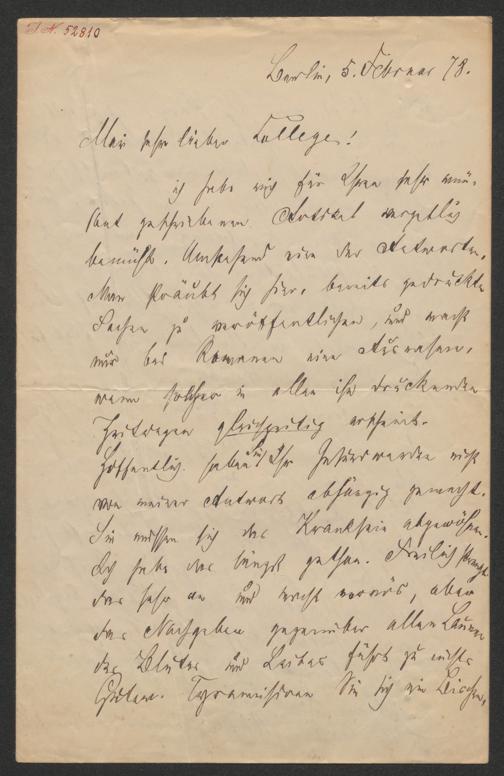 I. N. 52810
Berlin, 5. Februar 78.
Mein sehr lieber College!
ich habe mich für Ihren sehr
geschriebenen Artikel vergeblich
bemüht. Umstehend eine der Antworten.
Man sträubt sich hier, bereits gedruckte
Sachen zu veröffentlichen, und macht
nur bei Romanen eine Ausnahme,
wenn solcher in allen ihn druckenden
Zeitungen gleichzeitig erscheint.
Hoffentlich haben Sie Ihr Gesundwerden nicht
von meiner Antwort abhängig gemacht.
Sie müssen sich das Kranksein abgewöhnen.
Ich habe das längst gethan. Freilich strengt
das sehr an und macht nervös, aber
das Nachgeben gegenüber allen Launen
des Blutes und Leibes führt zu nichts
Gutem. Tyrannisiren Sie sich ein Bischen,